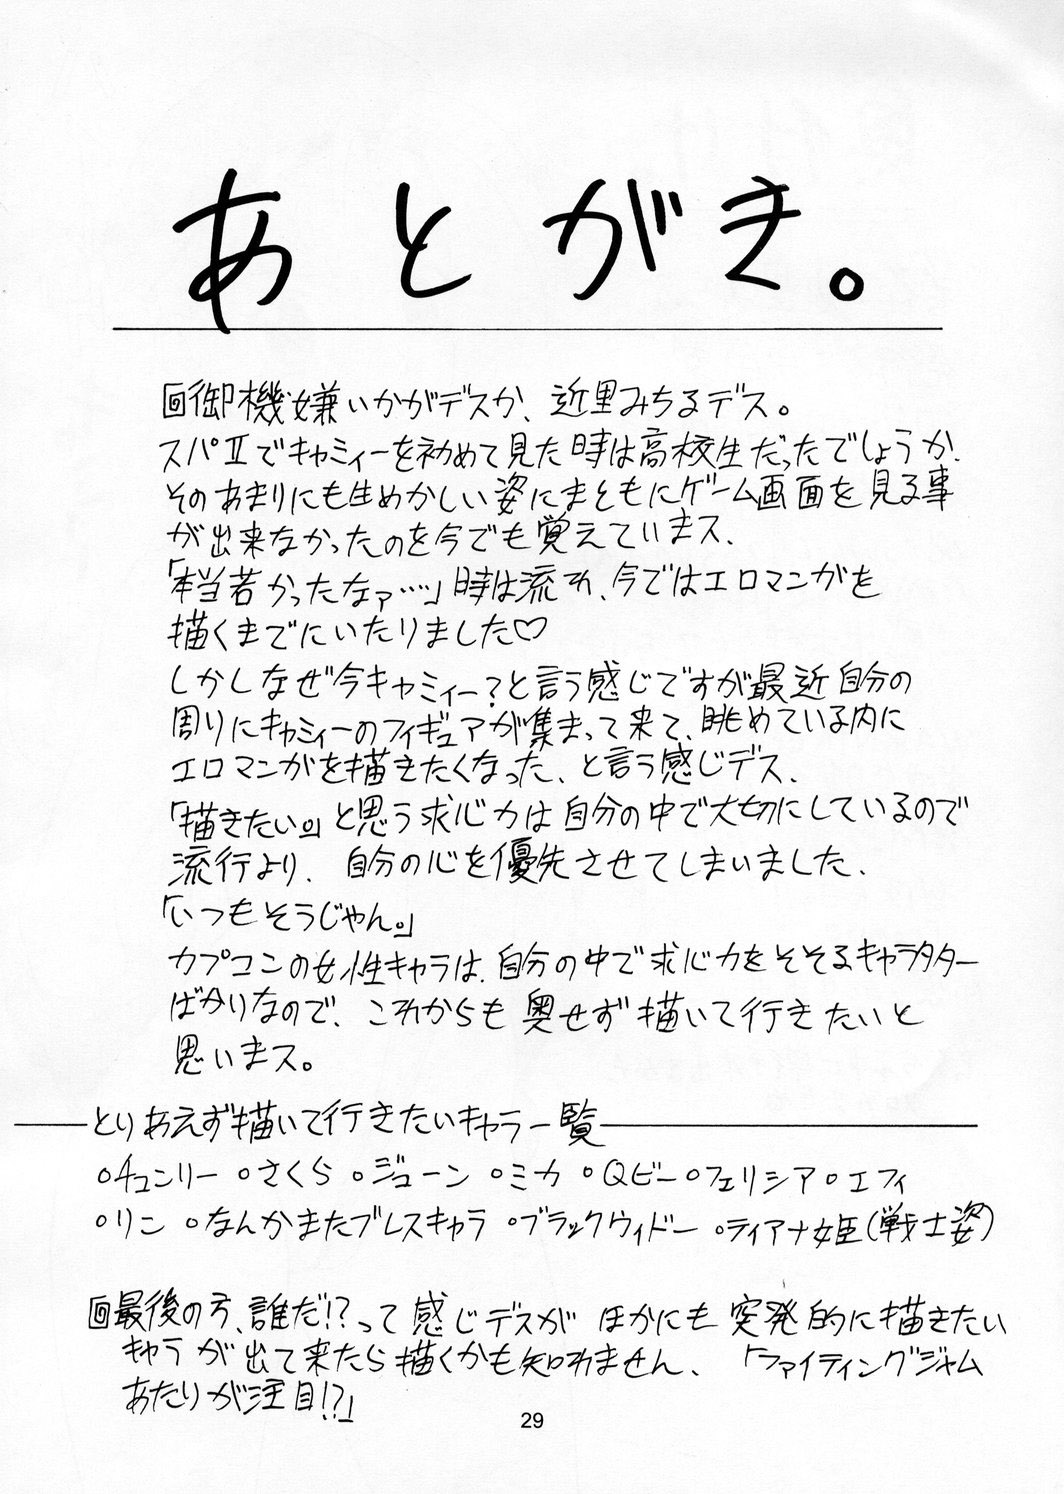 あとがき。
回御機嫌いかがデスか、近里みちるデス。
スパⅡでキャミィーを初めて見た時は高校生だったでしょうか、
そのあまりにも生めかしい姿にまともにゲーム画面を見る事
が出来なかったのを今でも覚えていまス、
「本当若かったなァ…」時は流れ、今ではエロマンガを
描くまでにいたりました♡
しかしなぜ今キャミィー?と言う感じですが最近自分の
周りにキャミィーのフィギュアが集まって来て、眺めている内に
エロマンガを描きたくなった、と言う感じデス、
「描きたい。」と思う求心力は自分の中で大切にしているので
流行より、自分の心を優先させてしまいました、
「いつもそうじゃん。」
カプコンの女性キャラは、自分の中で求心力をそそるキャラタター
ばかりなので、これからも奥せず描いて行きたいと
思いまス。
とりあえず描いて行きたいキャラ一覧
○チュンリー ○さくら ○ジューン ○ミカ ○Qビー ○フェリシア ○エフィ
○リン ○なんかまたブレスキャラ ○ブラックウィドー ○ティアナ姫(戦士姿)
回最後の方、誰だ!?って感じデスが ほかにも突発的に描きたい
キャラが出て来たら描くかも知れません、「ファイティングジャム
あたりが注目!?」
29